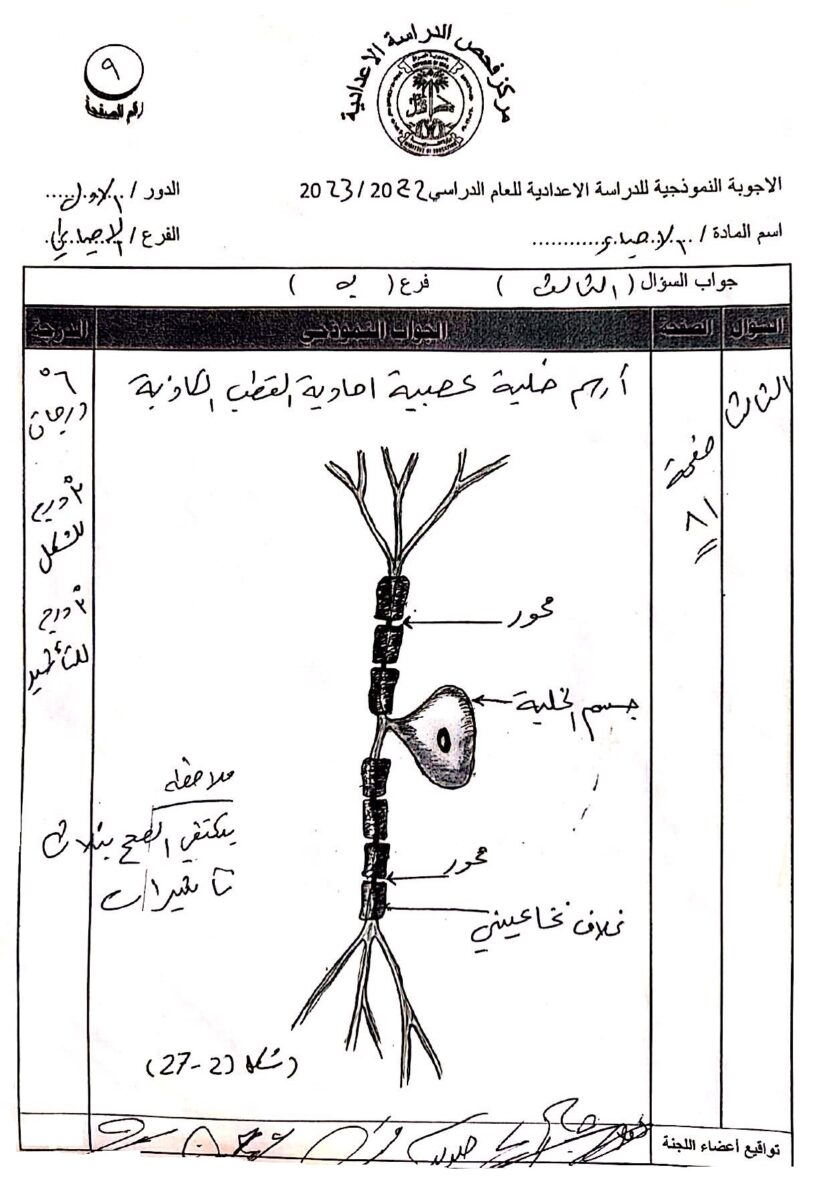 مركز فحص الدراسة الاعدادية
٩
رقم الصفحة
الاجوبة النموذجية للدراسة الاعدادية للعام الدراسي 2022 / 2023
الدور / الاول
اسم المادة / الاحياء
الفرع / الاحيائي
جواب السؤال ( الثالث ) فرع ( ب )
السؤال الصفحة الجواب النموذجي الدرجة
الثالث
صفحة
٨١
أرسم خلية عصبية احادية القطب الكاذبة
٦
درجات
٣ درج
للشكل
٣ درج
للتأشير
محور
جسم الخلية
محور
غلاف نخاعيني
ملاحظة
يكتفي المصحح بثلاث
تأشيرات
شكل (2-27)
تواقيع أعضاء اللجنة